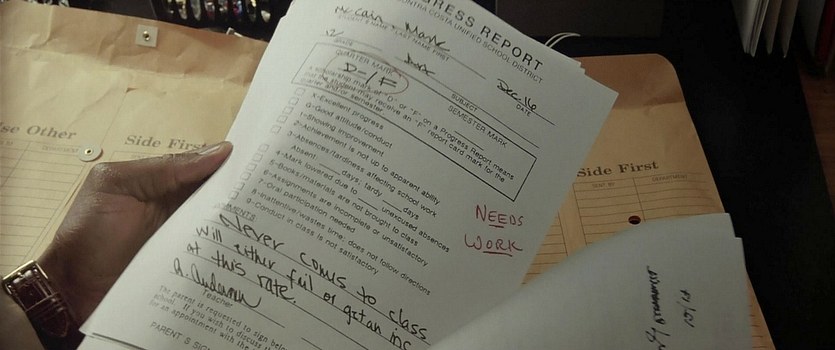 PROGRESS REPORT
CONTRA COSTA UNIFIED SCHOOL DISTRICT
McCain, Mark
STUDENT'S NAME - LAST NAME FIRST
12
Dec. 16
SUBJECT
DATE
QUARTER MARK
SEMESTER MARK
D-/F
A scholarship mark of "D" or "F" on a Progress Report means
that the student may receive an "F" report card mark for the
quarter and/or semester
X-Excellent progress
0-Good attitude/conduct
1-Showing improvement
2-Achievement is not up to apparent ability
3-Absences/tardiness affecting school work
Absent days; tardy days
4-Mark lowered due to unexcused absences
5-Books/materials are not brought to class
6-Assignments are incomplete or unsatisfactory
7-Oral participation needed
8-Inattentive/wastes time; does not follow directions
9-Conduct in class is not satisfactory
NEEDS
WORK
COMMENTS
Never comes to class
will either fail or get an inc
at this rate.
Teacher
The parent is requested to sign below
school. If you wish to discuss th
for an appointment with the
PARENT'S SIG
se Other
Side First
Side First
SENT BY
DEPARTMENT